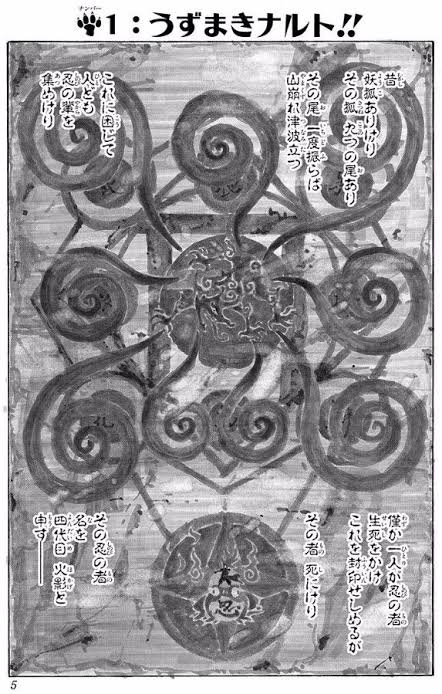 ナンバー
1：うずまきナルト!!
昔
妖狐ありけり
その狐 九つの尾あり
その尾 一度振らば
山崩れ津波立つ
これに困じて
人ども
忍の輩を
集めけり
僅か一人が忍の者
生死をかけ
これを封印せしめるが
その者 死にけり
その忍の者
名を
四代目 火影と
申す――
5